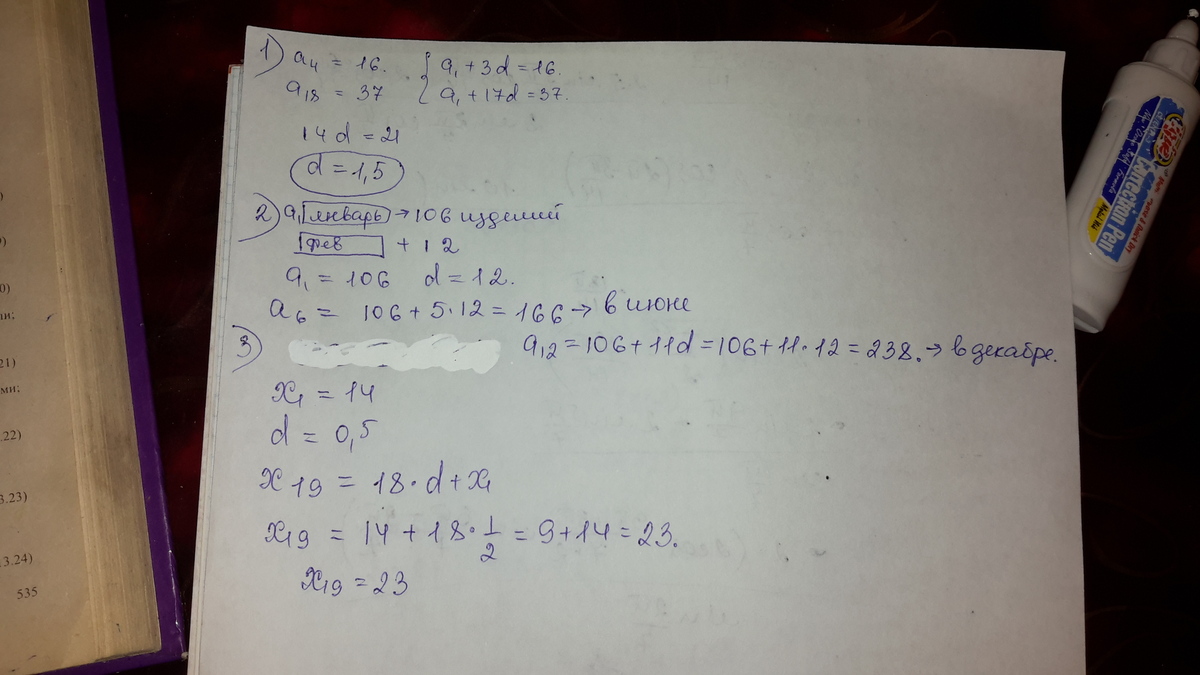 1) a₄ = 16. { a₁ + 3d = 16.
a₁₈ = 37 a₁ + 17d = 37.
14d = 21
d = 1,5
2) a₁ январь → 106 изделий
фев + 12
a₁ = 106 d = 12.
a₆ = 106 + 5·12 = 166 → в июне
3) a₁₂ = 106 + 11d = 106 + 11·12 = 238. → в декабре.
x₁ = 14
d = 0,5
x₁₉ = 18·d + x₁
x₁₉ = 14 + 18·1/2 = 9 + 14 = 23.
x₁₉ = 23
21)
.22)
3.23)
3.24)
535
Correction Pen